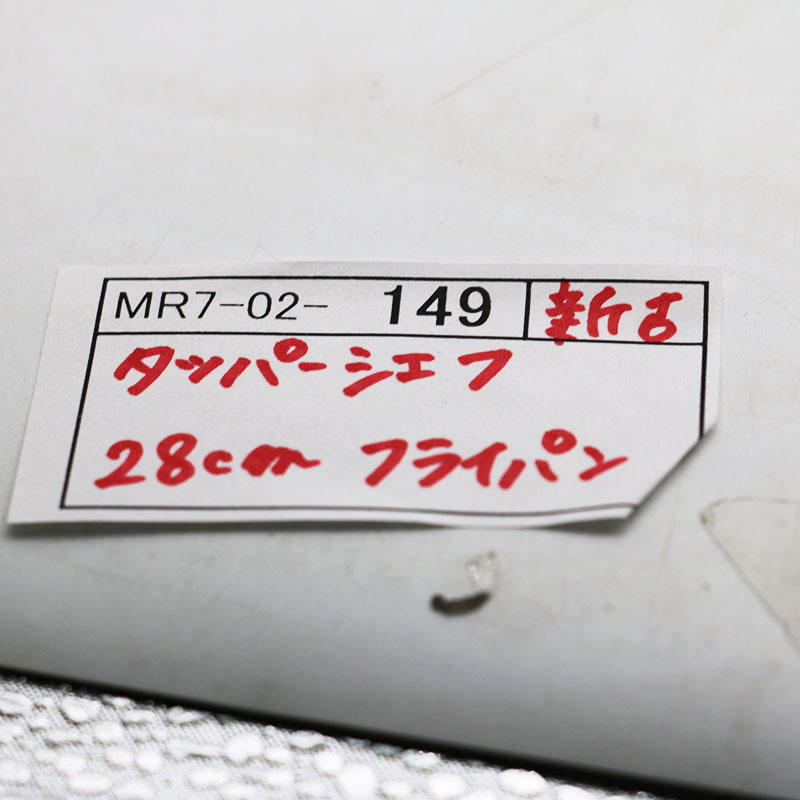 MR7-02- 149 新古
タッパーシェフ
28cm フライパン